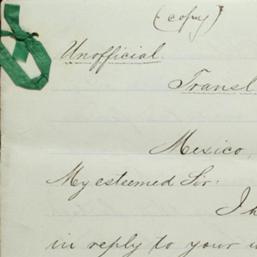 (copy)
Unofficial.
Transl
Mexico,
My esteemed Sir:
in reply to your